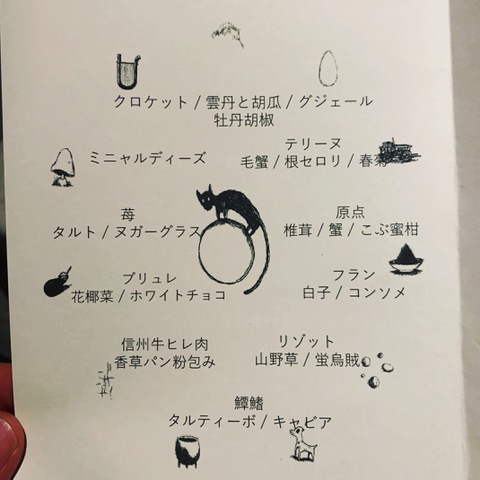 クロケット / 雲丹と胡瓜 / グジェール
牡丹胡椒
テリーヌ
毛蟹 / 根セロリ / 春菊
原点
椎茸 / 蟹 / こぶ蜜柑
フラン
白子 / コンソメ
リゾット
山野草 / 蛍烏賊
鱏鰭
タルティーボ / キャビア
信州牛ヒレ肉
香草パン粉包み
ブリュレ
花椰菜 / ホワイトチョコ
苺
タルト / ヌガーグラス
ミニャルディーズ